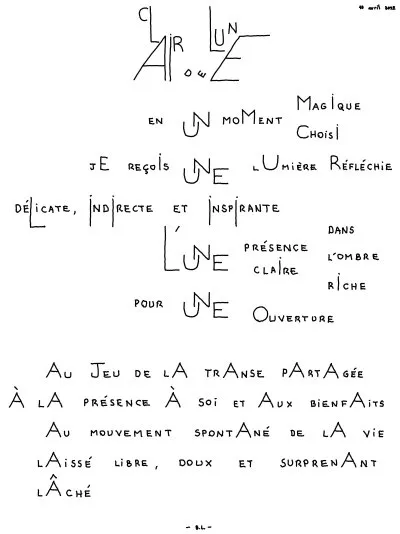 CLAIR DE LUNE
EN UN MOMENT MAGIQUE
CHOISI
JE REÇOIS UNE LUMIÈRE RÉFLÉCHIE
DÉLICATE, INDIRECTE ET INSPIRANTE
DANS
L'UNE PRÉSENCE L'OMBRE
CLAIRE
RICHE
POUR UNE OUVERTURE
AU JEU DE LA TRANSE PARTAGÉE
À LA PRÉSENCE À SOI ET AUX BIENFAITS
AU MOUVEMENT SPONTANÉ DE LA VIE
LAISSÉ LIBRE, DOUX ET SURPRENANT
LÂCHÉ
- B.L. -